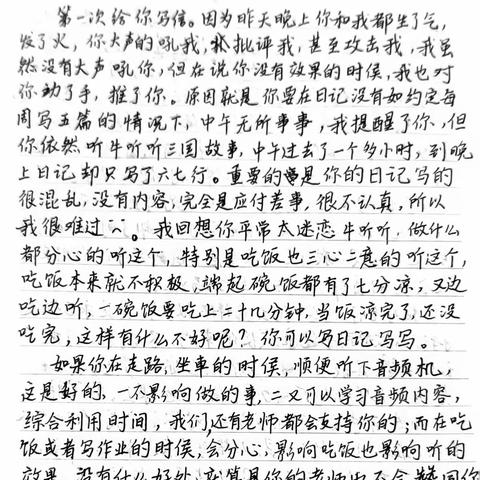 第一次给你写信。因为昨天晚上你和我都生了气,
发了火,你大声的吼我,批评我,甚至攻击我,我虽
然没有大声吼你,但在说你没有效果的时候,我也对
你动了手,推了你。原因就是你要在日记没有如约定每
周写五篇的情况下,中午无所事事,我提醒了你,但
你依然听牛听听三国故事,中午过去了一个多小时,到晚
上日记却只写了六七行。重要的是你的日记写的
很混乱,没有内容,完全是应付差事,很不认真,所以
我很难过。我回想你平常太迷恋牛听听,做什么
都分心的听这个,特别是吃饭也三心二意的听这个,
吃饭本来就不积极,端起碗饭都有了七分凉,又边
吃边听,一碗饭要吃上二十几分钟,当饭凉完了,还没
吃完,这样有什么不好呢?你可以写日记写写。
如果你在走路,坐车的时侯,顺便听下音频机,
这是好的,一不影响做的事,二又可以学习音频内容,
综合利用时间,我们还有老师都会支持你的;而在吃
饭或者写作业的时侯,会分心,影响吃饭也影响听的
效果,没有什么好处,就算是你的老师也不会